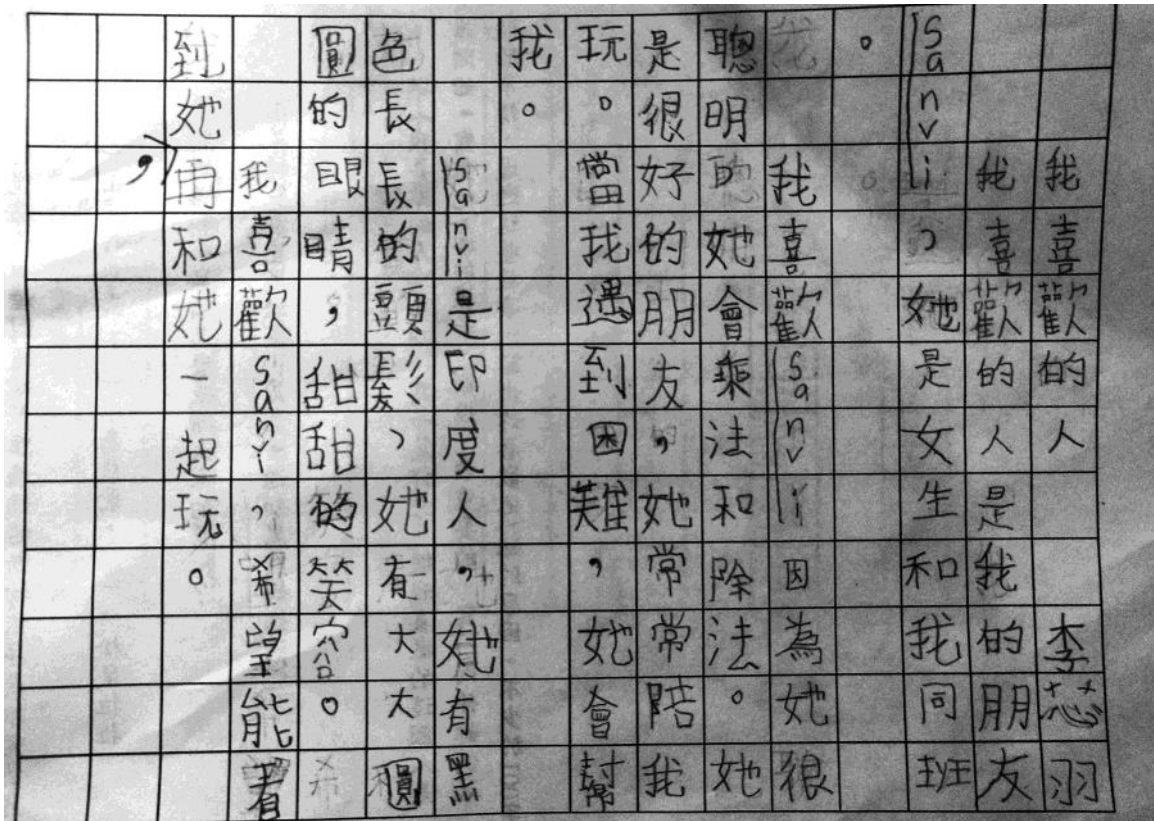 我喜歡的人 李羽
我喜歡的人是我的朋友
Sanvi，她是女生和我同班
。
我喜歡Sanvi因為她很
聰明她會乘法和除法。她
是很好的朋友，她常常陪我
玩。當我遇到困難，她會幫
我。
Sanvi是印度人，她有黑
色長長的頭髮，她有大大圓
圓的眼睛，甜甜的笑容。
我喜歡Sanvi，希望能看
到她，再和她一起玩。